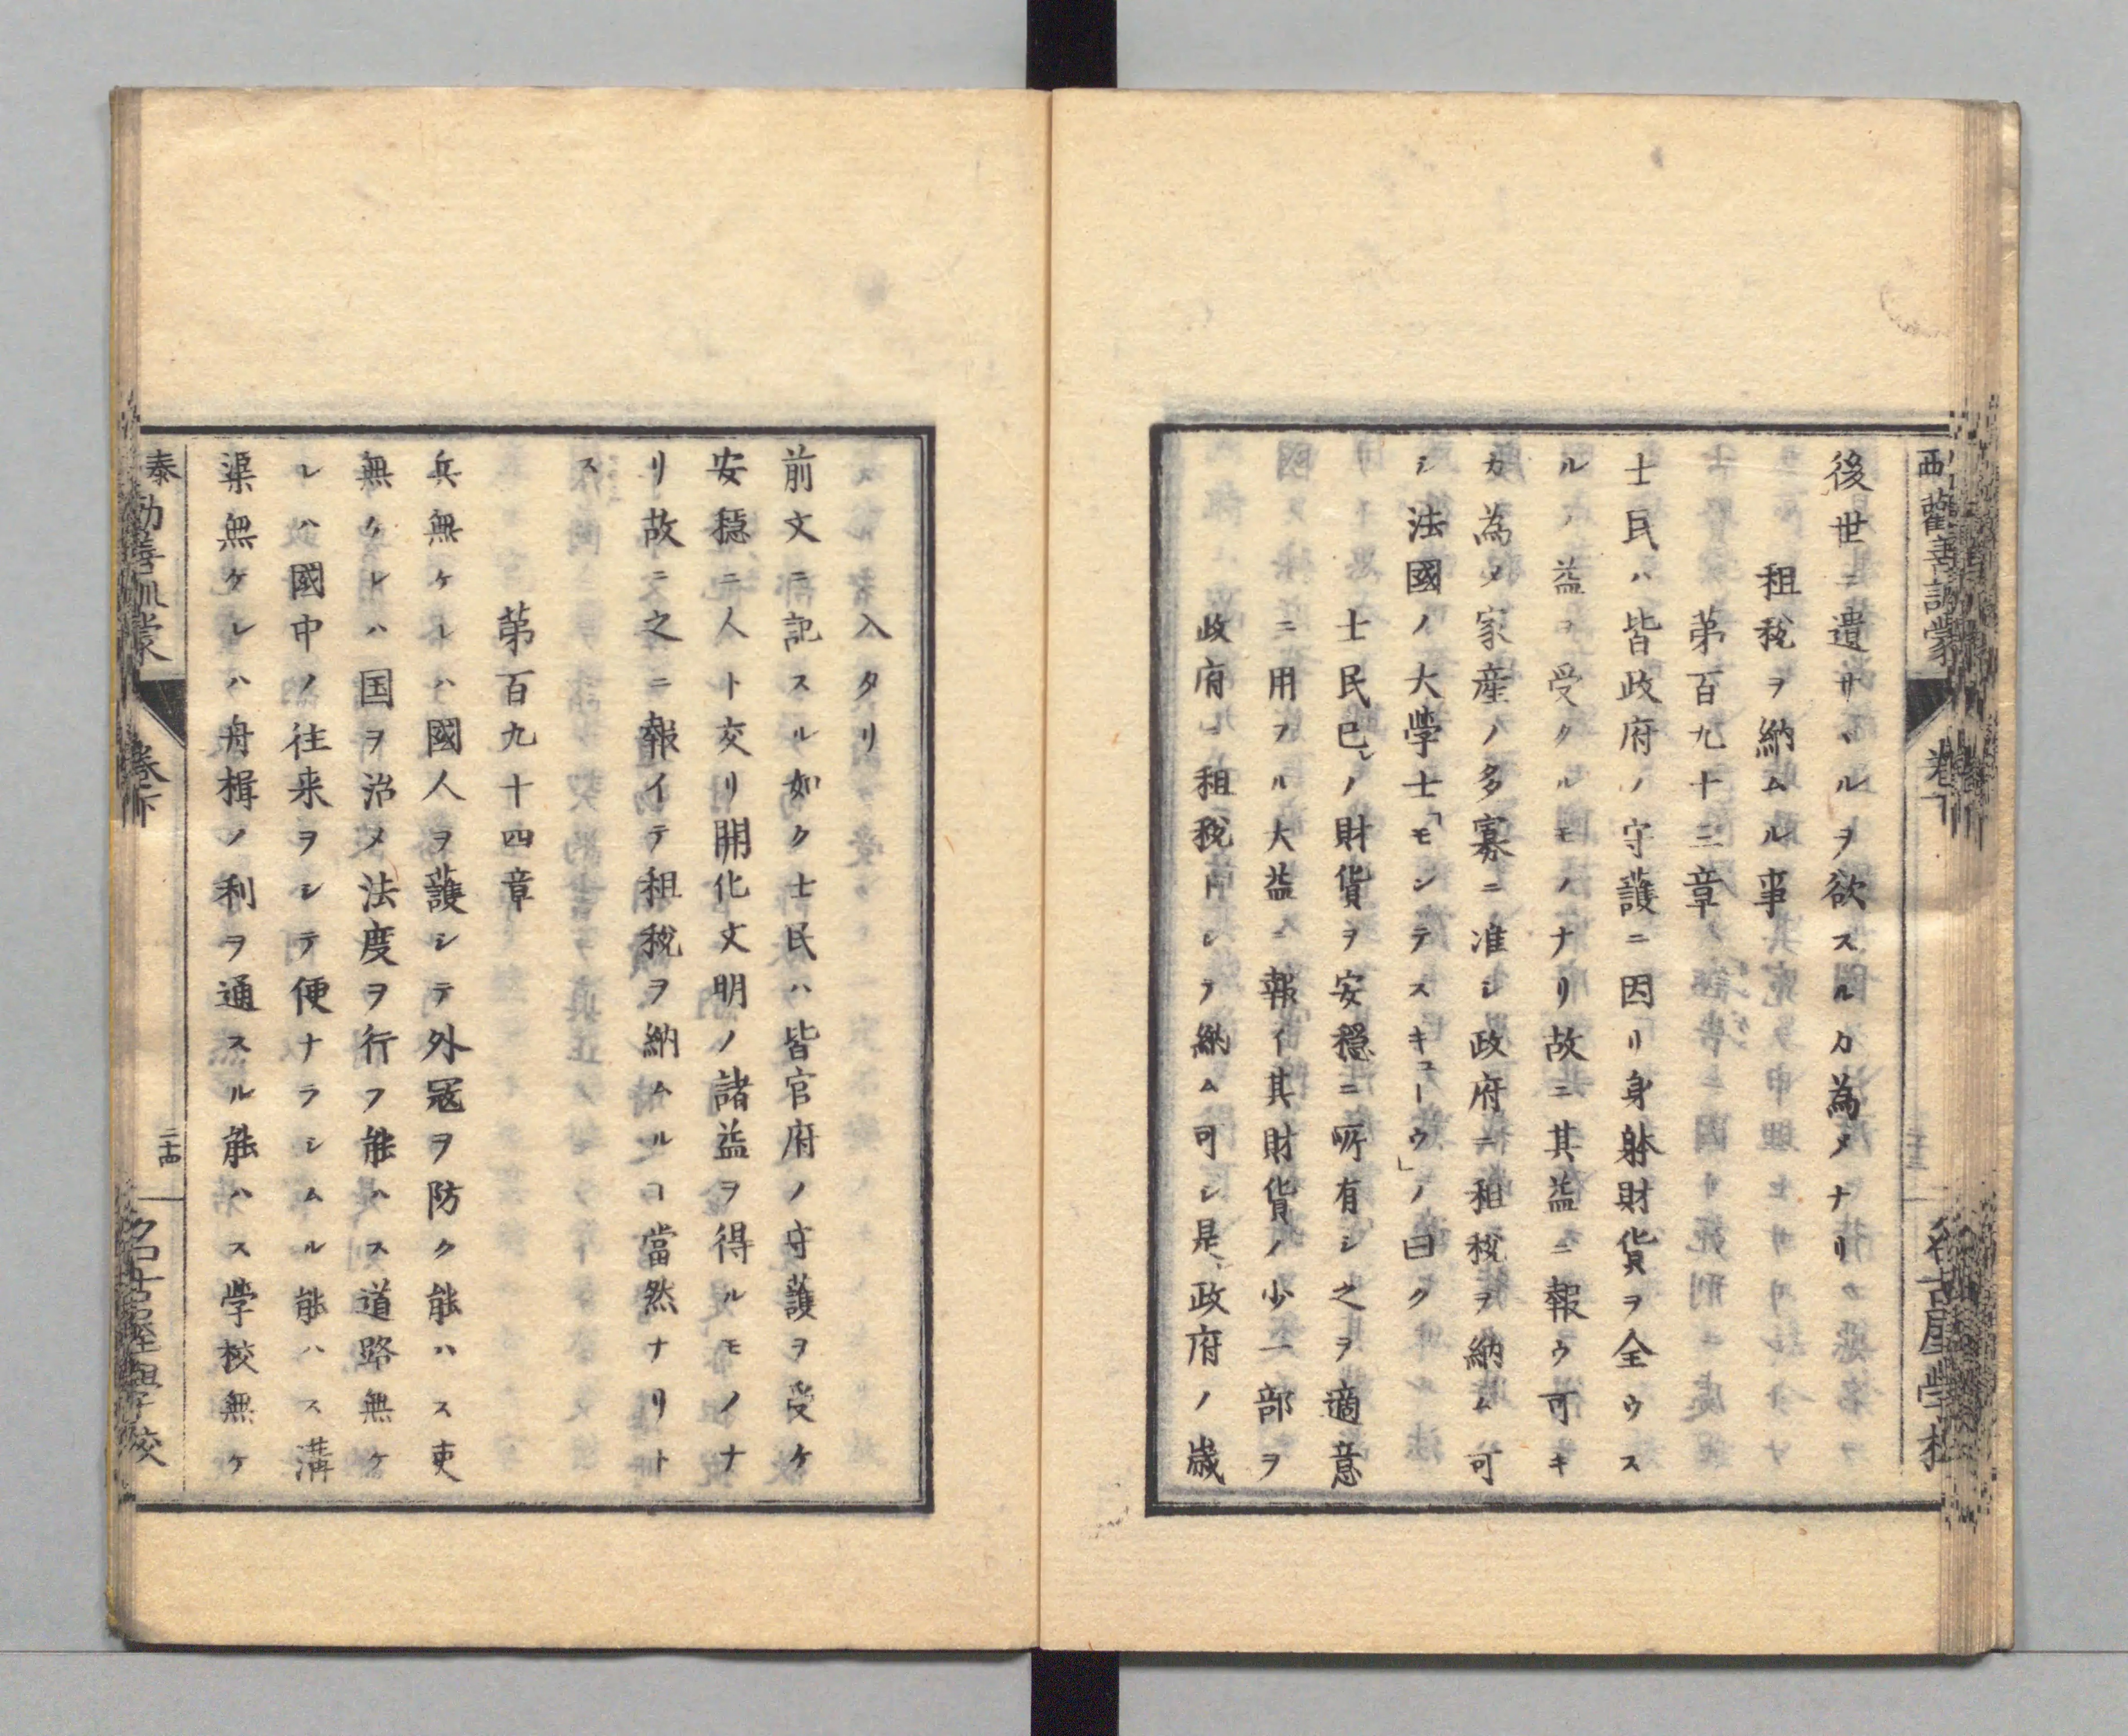 後世ニ遺サヽルヲ欲スルカ為メナリ
租税ヲ納ムル事
第百九十三章
士民ハ皆政府ノ守護ニ因リ身躰財貨ヲ全ウス
ルノ益ヲ受クルモノナリ故ニ其益ニ報ウ可キ
カ為メ家産ノ多寡ニ准シ政府ニ租税ヲ納ム可
シ法國ノ大學士「モンテスキューウ」ノ曰ク
士民已レノ財貨ヲ安穏ニ所有シ之ヲ適意
ニ用ヲル大益ニ報イ其財貨ノ少一部ヲ
政府ニ租税トシテ納ム可シ是、政府ノ歳
入タリ
前文ニ記スル如ク士民ハ皆官府ノ守護ヲ受ケ
安穏ニ人ト交リ開化文明ノ諸益ヲ得ルモノナ
リ故ニ之ニ報イテ租税ヲ納ムルヿ當然ナリト
ス
第百九十四章
兵無ケレハ國人ヲ護シテ外冦ヲ防ク能ハス吏
無ケレハ国ヲ治メ法度ヲ行フ能ハス道路無ケ
レハ國中ノ往来ヲシテ便ナラシムル能ハス溝
渠無ケレハ舟楫ノ利ヲ通スル能ハス学校無ケ
泰勧善訓蒙
巻下
二十四
名古屋學校